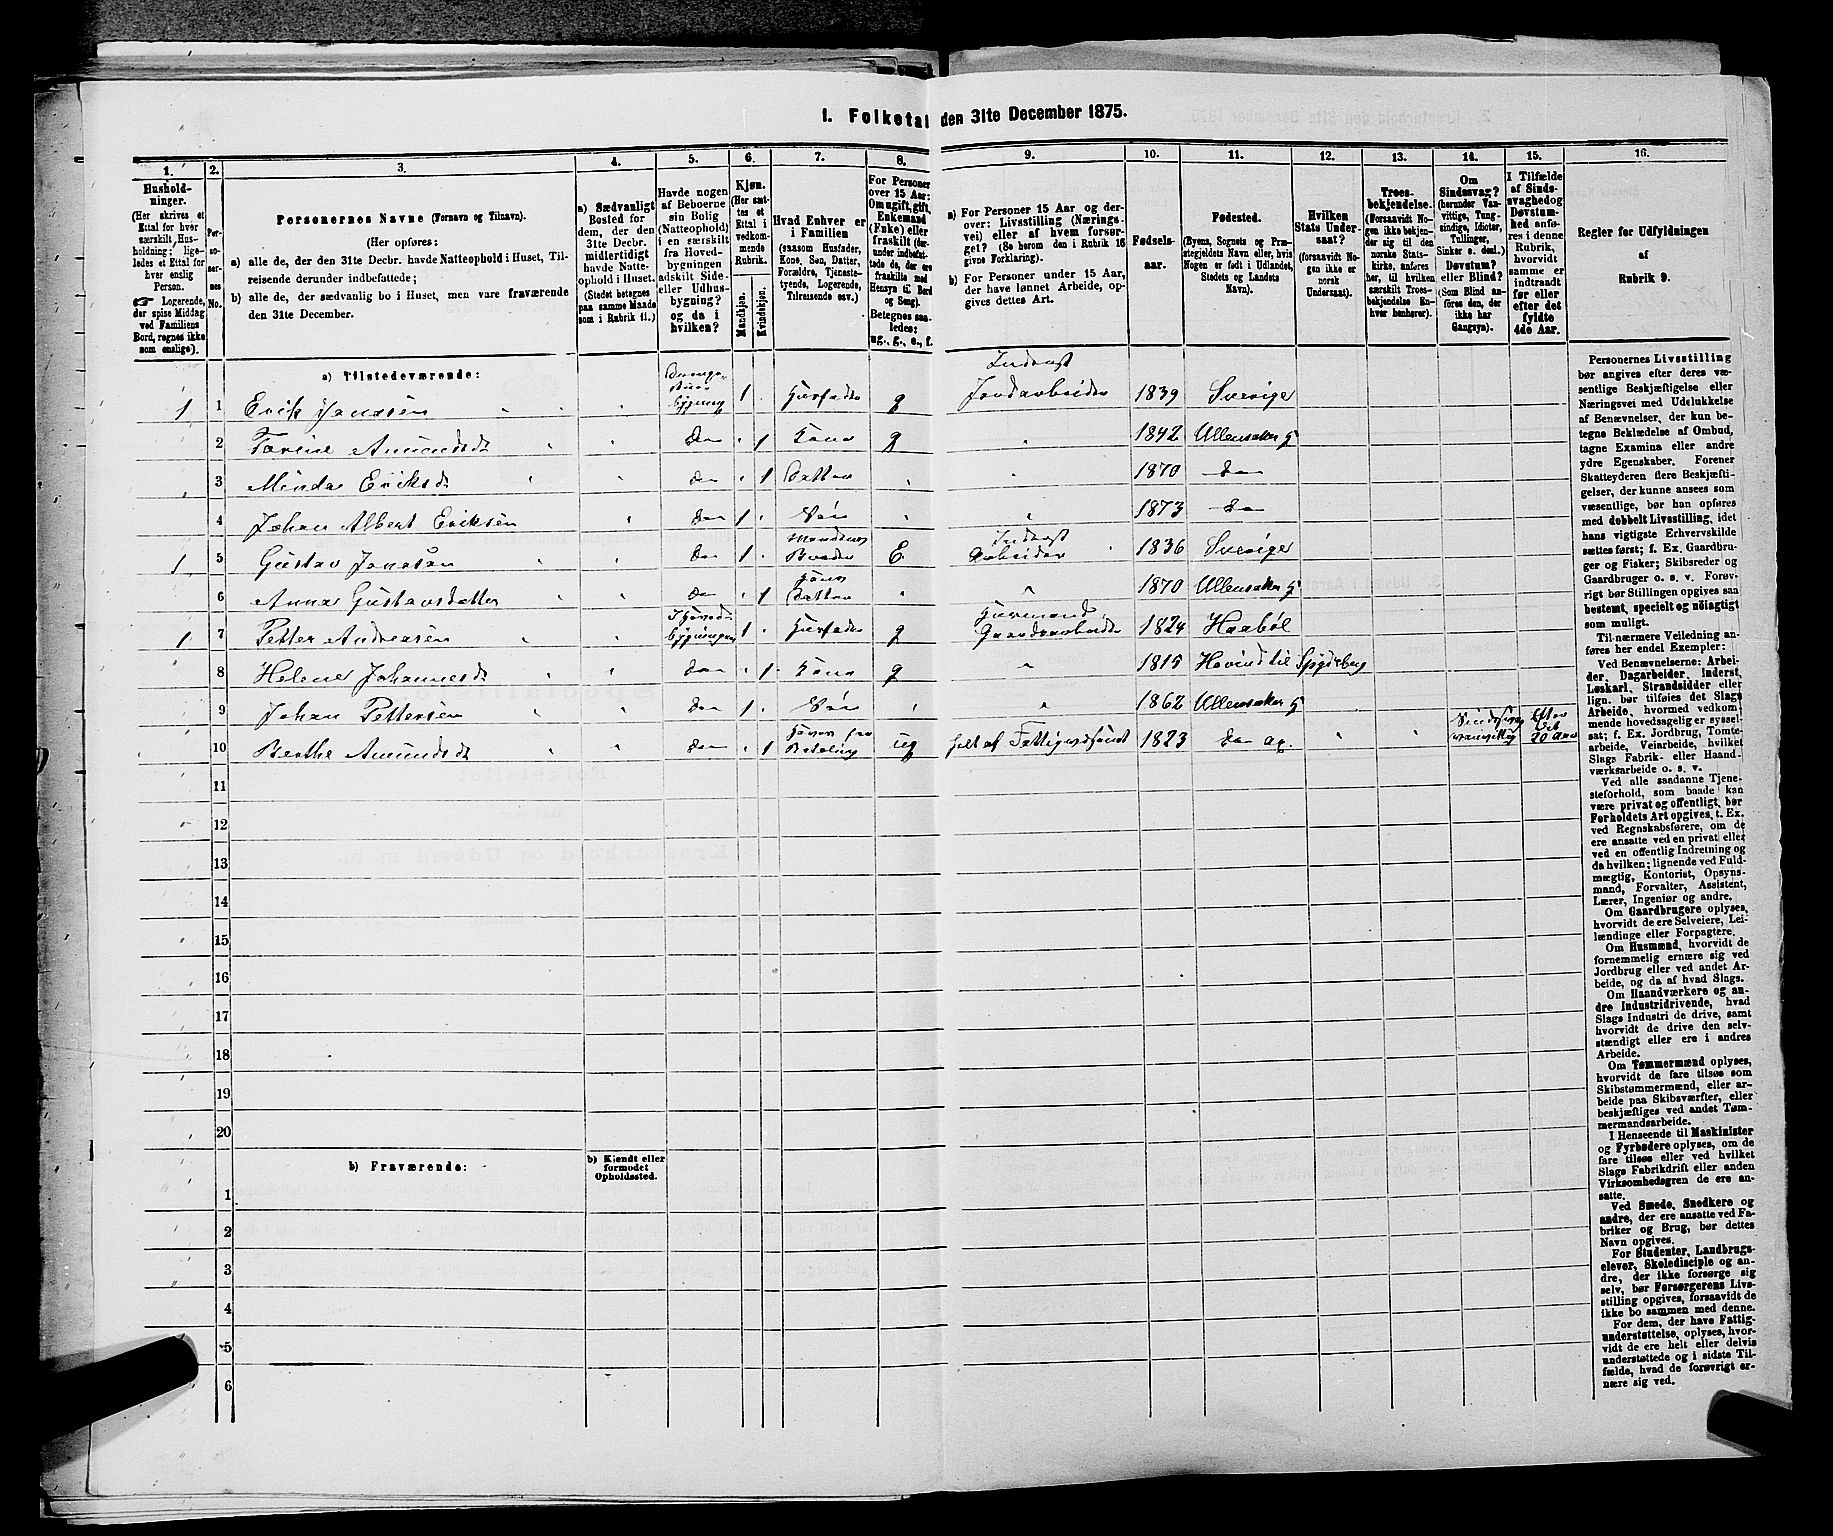 1. Folketal den 31te December 1875.
1.
2.
3.
4.
5.
6.
7.
8.
9.
10.
11.
12.
13.
14.
15.
16.
Hushold-
ninger.
(Her skrives et
Ettal for hver
særskilt Hus-
holdning; lige-
ledes et Ettal for
hver enslig
Person.
☞ Logerende,
der spise Middag
ved Familiens
Bord, regnes ikke
som enslige).
Per-
so-
ner-
nes
No.
Personernes Navne (Fornavn og Tilnavn).
(Her opføres:
a) alle de, der den 31te Decbr. havde Natteophold i Huset, Til-
reisende derunder indbefattede;
b) alle de, der sædvanlig bo i Huset, men vare fraværende
den 31te December.
a) Sædvanligt
Bosted for
dem, der den
31te Decbr.
midlertidigt
havde Natte-
ophold i Huset.
(Stedet betegnes
paa samme Maade
som i Rubrik 11.)
Havde nogen
af Beboerne
sin Bolig
(Natteophold)
i en særskilt
fra Hoved-
bygningen
adskilt Side-
eller Udhus-
bygning?
og da i
hvilken?
Kjøn.
(Her sæt-
tes et
Ettal i
vedkom-
mende
Rubrik.
Mandkjøn.
Kvindekjøn.
Hvad Enhver er
i Familien
(saasom Husfader,
Kone, Søn, Datter,
Forældre, Tjeneste-
tyende, Logerende,
Tilreisende osv.)
For Personer
over 15 Aar:
Om ugift, gift,
Enkemand
(Enke) eller
fraskilt (der-
under indbefat-
tede de, der ere
fraskilte med
Hensyn til Bord
og Seng).
Betegnes saa-
ledes:
ug., g., e., f.
a) For Personer 15 Aar og der-
over: Livsstilling (Nærings-
vei) eller af hvem forsør-
get? (Se herom den i Rubrik 16
givne Forklaring).
b) For Personer under 15 Aar,
der have lønnet Arbeide, op-
gives dettes Art.
Fødsels-
aar.
Fødested.
(Byens, Sognets og Præ-
stegjeldets Navn eller, hvis
Nogen er født i Udlandet,
Stedets og Landets
Navn).
Hvilken
Stats Under-
saat?
(forsaavidt No-
gen ikke er
norsk
Undersaat).
Troes-
bekjendelse.
(Forsaavidt No-
gen ikke bekjen-
der sig til den
norske Stats-
kirke, anføres
her, til hvilken
særskilt Troes-
bekjendelse En-
hver henhører).
Om
Sindssvag?
(herunder Van-
vittige, Tung-
sindige, Idioter,
Tullinger,
Sinker o. desl.)
Døvstum?
eller Blind?
(Som Blind an-
føres den, der
ikke har
Gangsyn).
I Tilfælde
af Sinds-
svaghed og
Døvstum-
hed anfø-
res i denne
Rubrik,
hvorvidt
samme er
indtraadt
før eller
efter det
fyldte
4de Aar.
Regler for Udfyldningen
af
Rubrik 9.
a) Tilstedeværende:
1 1 Erik Jonasen Drenge-stue-bygning 1 Husfader g Inderst Jordarbeider 1839 Sverige
2 Torine Amundsd Do 1 Kone g 1842 Ullensaker G
3 Minda Eriksd Do 1 Datter 1870 Do
4 Johan Albert Eriksen Do 1 Søn 1873 Do
1 5 Gustav Jonasen Do 1 Mandens Broder E Inderst Arbeider 1836 Sverige
6 Anna Gustavsdatter Do 1 Hans Datter 1870 Ullensaker G
1 7 Petter Andreasen I Hoved-bygningen 1 Husfader g Husmand Gaardsarbeider 1824 Haabøl
8 Helene Johannesd Do 1 Kone g 1815 Hovind til Spydeberg
9 Johan Pettersen Do 1 Søn 1862 Ullensaker G
10 Berthe Amundsd Do 1 ug helt af Fattigvæsenet 1823 Do Sindssvag vanvittig Efter det 20 Aar
11
12
13
14
15
16
17
18
19
20
b) Fraværende:
b) Kjendt eller
formodet
Opholdssted.
1
2
3
4
5
6
Personernes Livsstilling
bør angives efter deres væ-
sentlige Beskjæftigelse eller
Næringsvei med Udelukkelse
af Benævnelser, der kun be-
tegne Beklædelse af Ombud,
tagne Examina eller andre
ydre Egenskaber. Forener
Skatteyderen flere Beskjæfti-
gelser, der kunne ansees som
væsentlige, bør han opføres
med dobbelt Livsstilling, idet
hans vigtigste Erhvervskilde
sættes først; f. Ex. Gaardbru-
ger og Fisker; Skibsreder og
Gaardbruger o. s. v. Forøv-
rigt bør Stillingen opgives saa
bestemt, specielt og nöiagtigt
som muligt.
Til nærmere Veiledning an-
føres her endel Exempler:
Ved Benævnelserne: Arbei-
der, Dagarbeider, Inderst,
Løskarl, Strandsidder eller
lign. bør tilføies det Slags
Arbeide, hvormed vedkom-
mende hovedsagelig er syssel-
sat; f. Ex. Jordbrug, Tomte-
arbeide, Veiarbeide, hvilket
Slags Fabrik- eller Haand-
værksarbeide o. s. v.
Ved alle saadanne Tjene-
steforhold, som baade kan
være privat og offentligt, bør
Forholdets Art opgives, t. Ex.
ved Regnskabsførere, om de
ere ansatte ved en privat eller
ved en offentlig Indretning og
da hvilken; lignende ved Fuld-
mægtig, Kontorist, Opsyns-
mand, Forvalter, Assistent,
Lærer, Ingeniør og andre.
Om Gaardbrugere oplyses,
hvorvidt de ere Selveiere, Lei-
lændinge eller Forpagtere.
Om Husmænd, hvorvidt de
fornemmelig ernære sig ved
Jordbrug eller ved andet Ar-
beide, og da af hvad Slags.
Om Haandværkere og an-
dre Industridrivende, hvad
Slags Industri de drive, samt
hvorvidt de drive den selv-
stændigt eller ere i andres
Arbeide.
Om Tømmermænd oplyses,
hvorvidt de fare tilsøs som
Skibstømmermænd, eller ar-
beide paa Skibsværfter, eller
beskjæftiges ved andet Tøm-
mermandsarbeide.
I Henseende til Maskinister
og Fyrbødere oplyses, om de
fare tilsøs eller ved hvilket
Slags Fabrikdrift eller anden
Virksomhedsgren de ere an-
satte.
Ved Smede, Snedkere og
andre, der ere ansatte ved Fa-
briker og Brug, bør dettes
Navn opgives.
For Studenter, Landbrugs-
elever, Skoledisciple og an-
dre, der ikke forsørge sig
selv, bør Forsørgerens Livs-
stilling opgives, forsaavidt de
ikke bo sammen med denne.
For dem, der have Fattig-
understøttelse, oplyses, hvor-
vidt de ere helt eller delvis
understøttede og i sidste Til-
fælde, hvad de forøvrigt er-
nære sig ved.